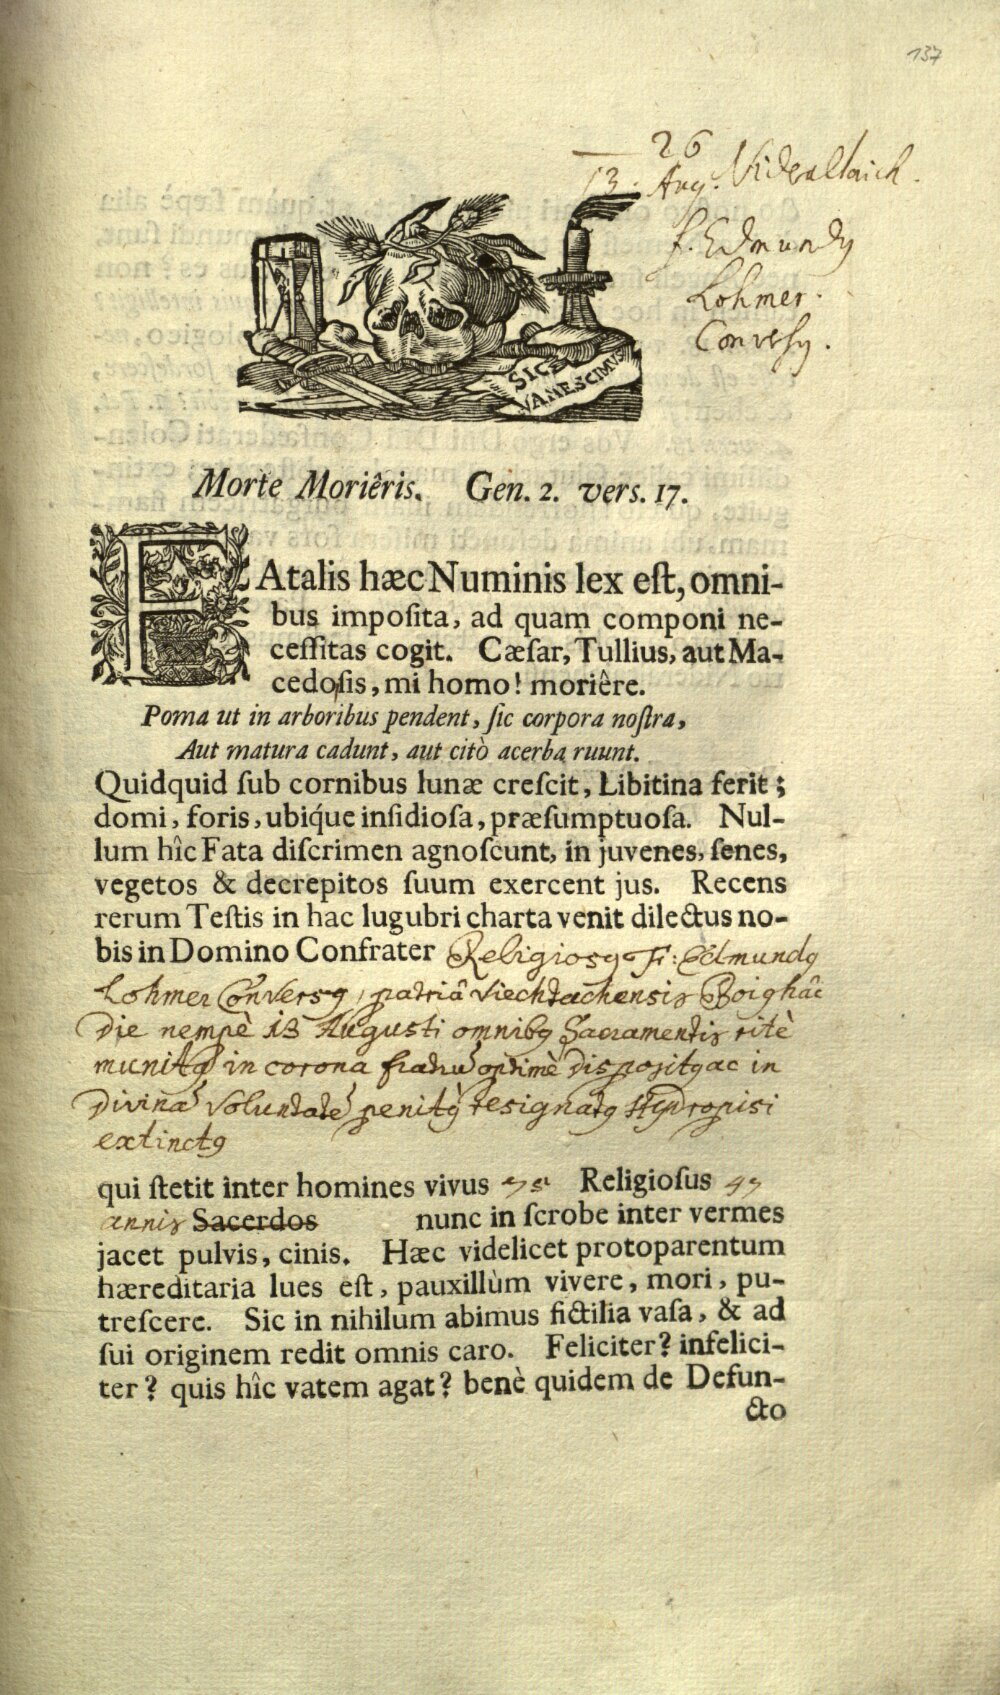 137
26
13. Aug. Nideraltaich.
f. Edmundꝯ
Lohmer.
Conversꝯ.
SIC E
VANESCIMUS
Morte Moriêris. Gen. 2. vers. 17.
FAtalis hæc Numinis lex eſt, omni-
bus impoſita, ad quam componi ne-
ceſſitas cogit. Cæſar, Tullius, aut Ma-
cedoſis, mi homo! moriêre.
Poma ut in arboribus pendent, ſic corpora noſtra,
Aut matura cadunt, aut citò acerba ruunt.
Quidquid ſub cornibus lunæ creſcit, Libitina ferit;
domi, foris, ubiq́ue inſidioſa, præſumptuoſa. Nul-
lum hîc Fata diſcrimen agnoſcunt, in juvenes, ſenes,
vegetos & decrepitos ſuum exercent jus. Recens
rerum Teſtis in hac lugubri charta venit dilectus no-
bis in Domino Confrater Religiosꝯ Fr: Edmundꝯ
Lohmer Conversꝯ, patriâ Viechtachensis Boighâc
Die nempè 13 Augusti omnibꝯ Sacramentis ritè
munitꝯ in corona fratrū optimè dispositꝯ ac in
Divinā Voluntatē penitꝯ resignatꝯ Hydropisi
extinctꝯ
qui ſtetit inter homines vivus 75 Religioſus 47
annis Sacerdos nunc in ſcrobe inter vermes
jacet pulvis, cinis. Hæc videlicet protoparentum
hæreditaria lues eſt, pauxillùm vivere, mori, pu-
treſcere. Sic in nihilum abimus fictilia vaſa, & ad
ſui originem redit omnis caro. Feliciter? infelici-
ter? quis hîc vatem agat? benè quidem de Defun-
cto